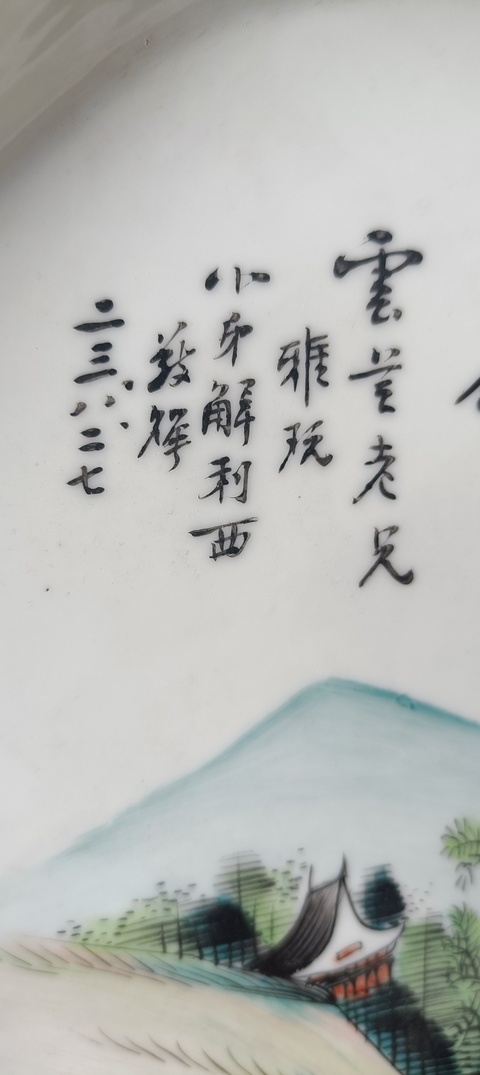 雲老兄
雅玩
小弟解利西
二三、八、二七